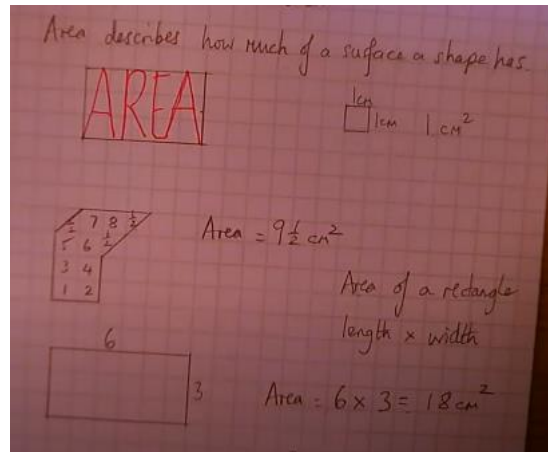 Area describes how much of a surface a shape has.
AREA
1cm
1cm 1 cm²
½ 7 8 ½
5 6 ½
3 4
1 2
Area = 9½ cm²
Area of a rectangle
length × width
6
3
Area = 6 × 3 = 18 cm²